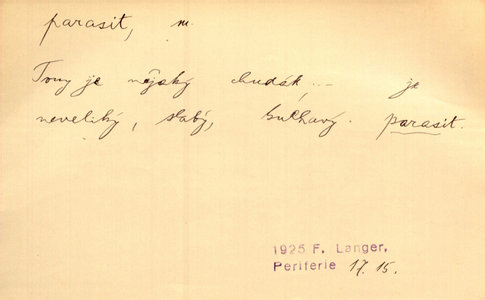 parasit, m.
Tony je nějaký chudák, – je
neveliký, slabý, krhavý parasit.
1925 F. Langer,
Periferie 17.15.